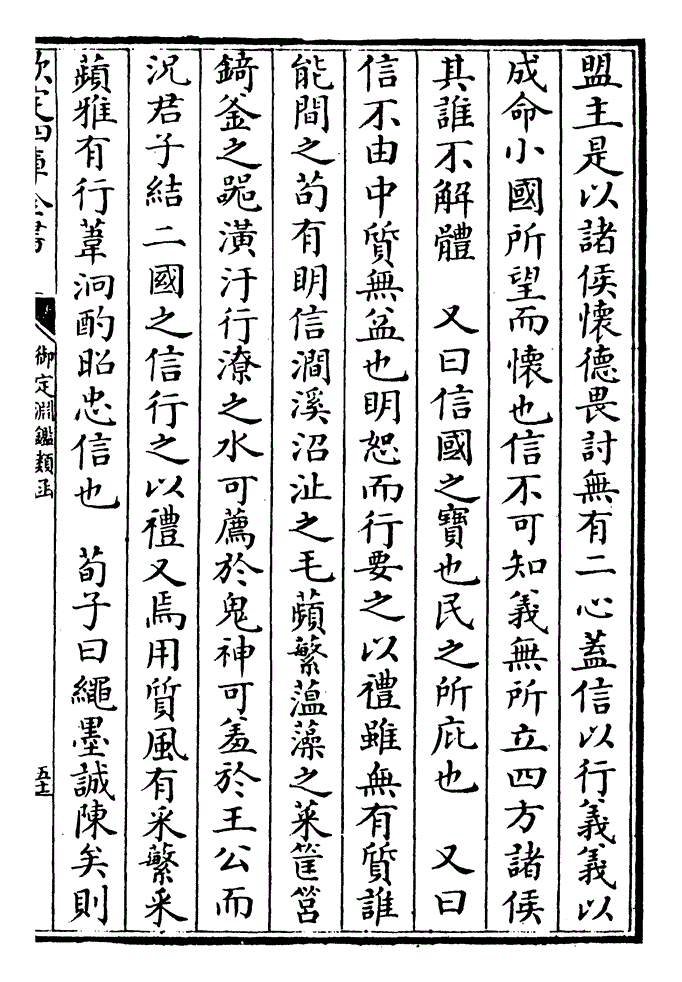 盟主是以諸侯懷德畏討無有二心蓋信以行義義以
成命小國所望而懷也信不可知義無所立四方諸侯
其誰不解體　又曰信國之寶也民之所庇也　又曰
信不由中質無益也明恕而行要之以禮雖無有質誰
能間之茍有明信澗溪沼沚之毛蘋蘩薀藻之菜筐筥
錡釜之噐潢汙行潦之水可薦於鬼神可羞於王公而
況君子結二國之信行之以禮又焉用質風有采蘩采
蘋雅有行葦泂酌昭忠信也　荀子曰繩墨誠陳矣則
欽定四庫全書
御定淵鑑類函
五十